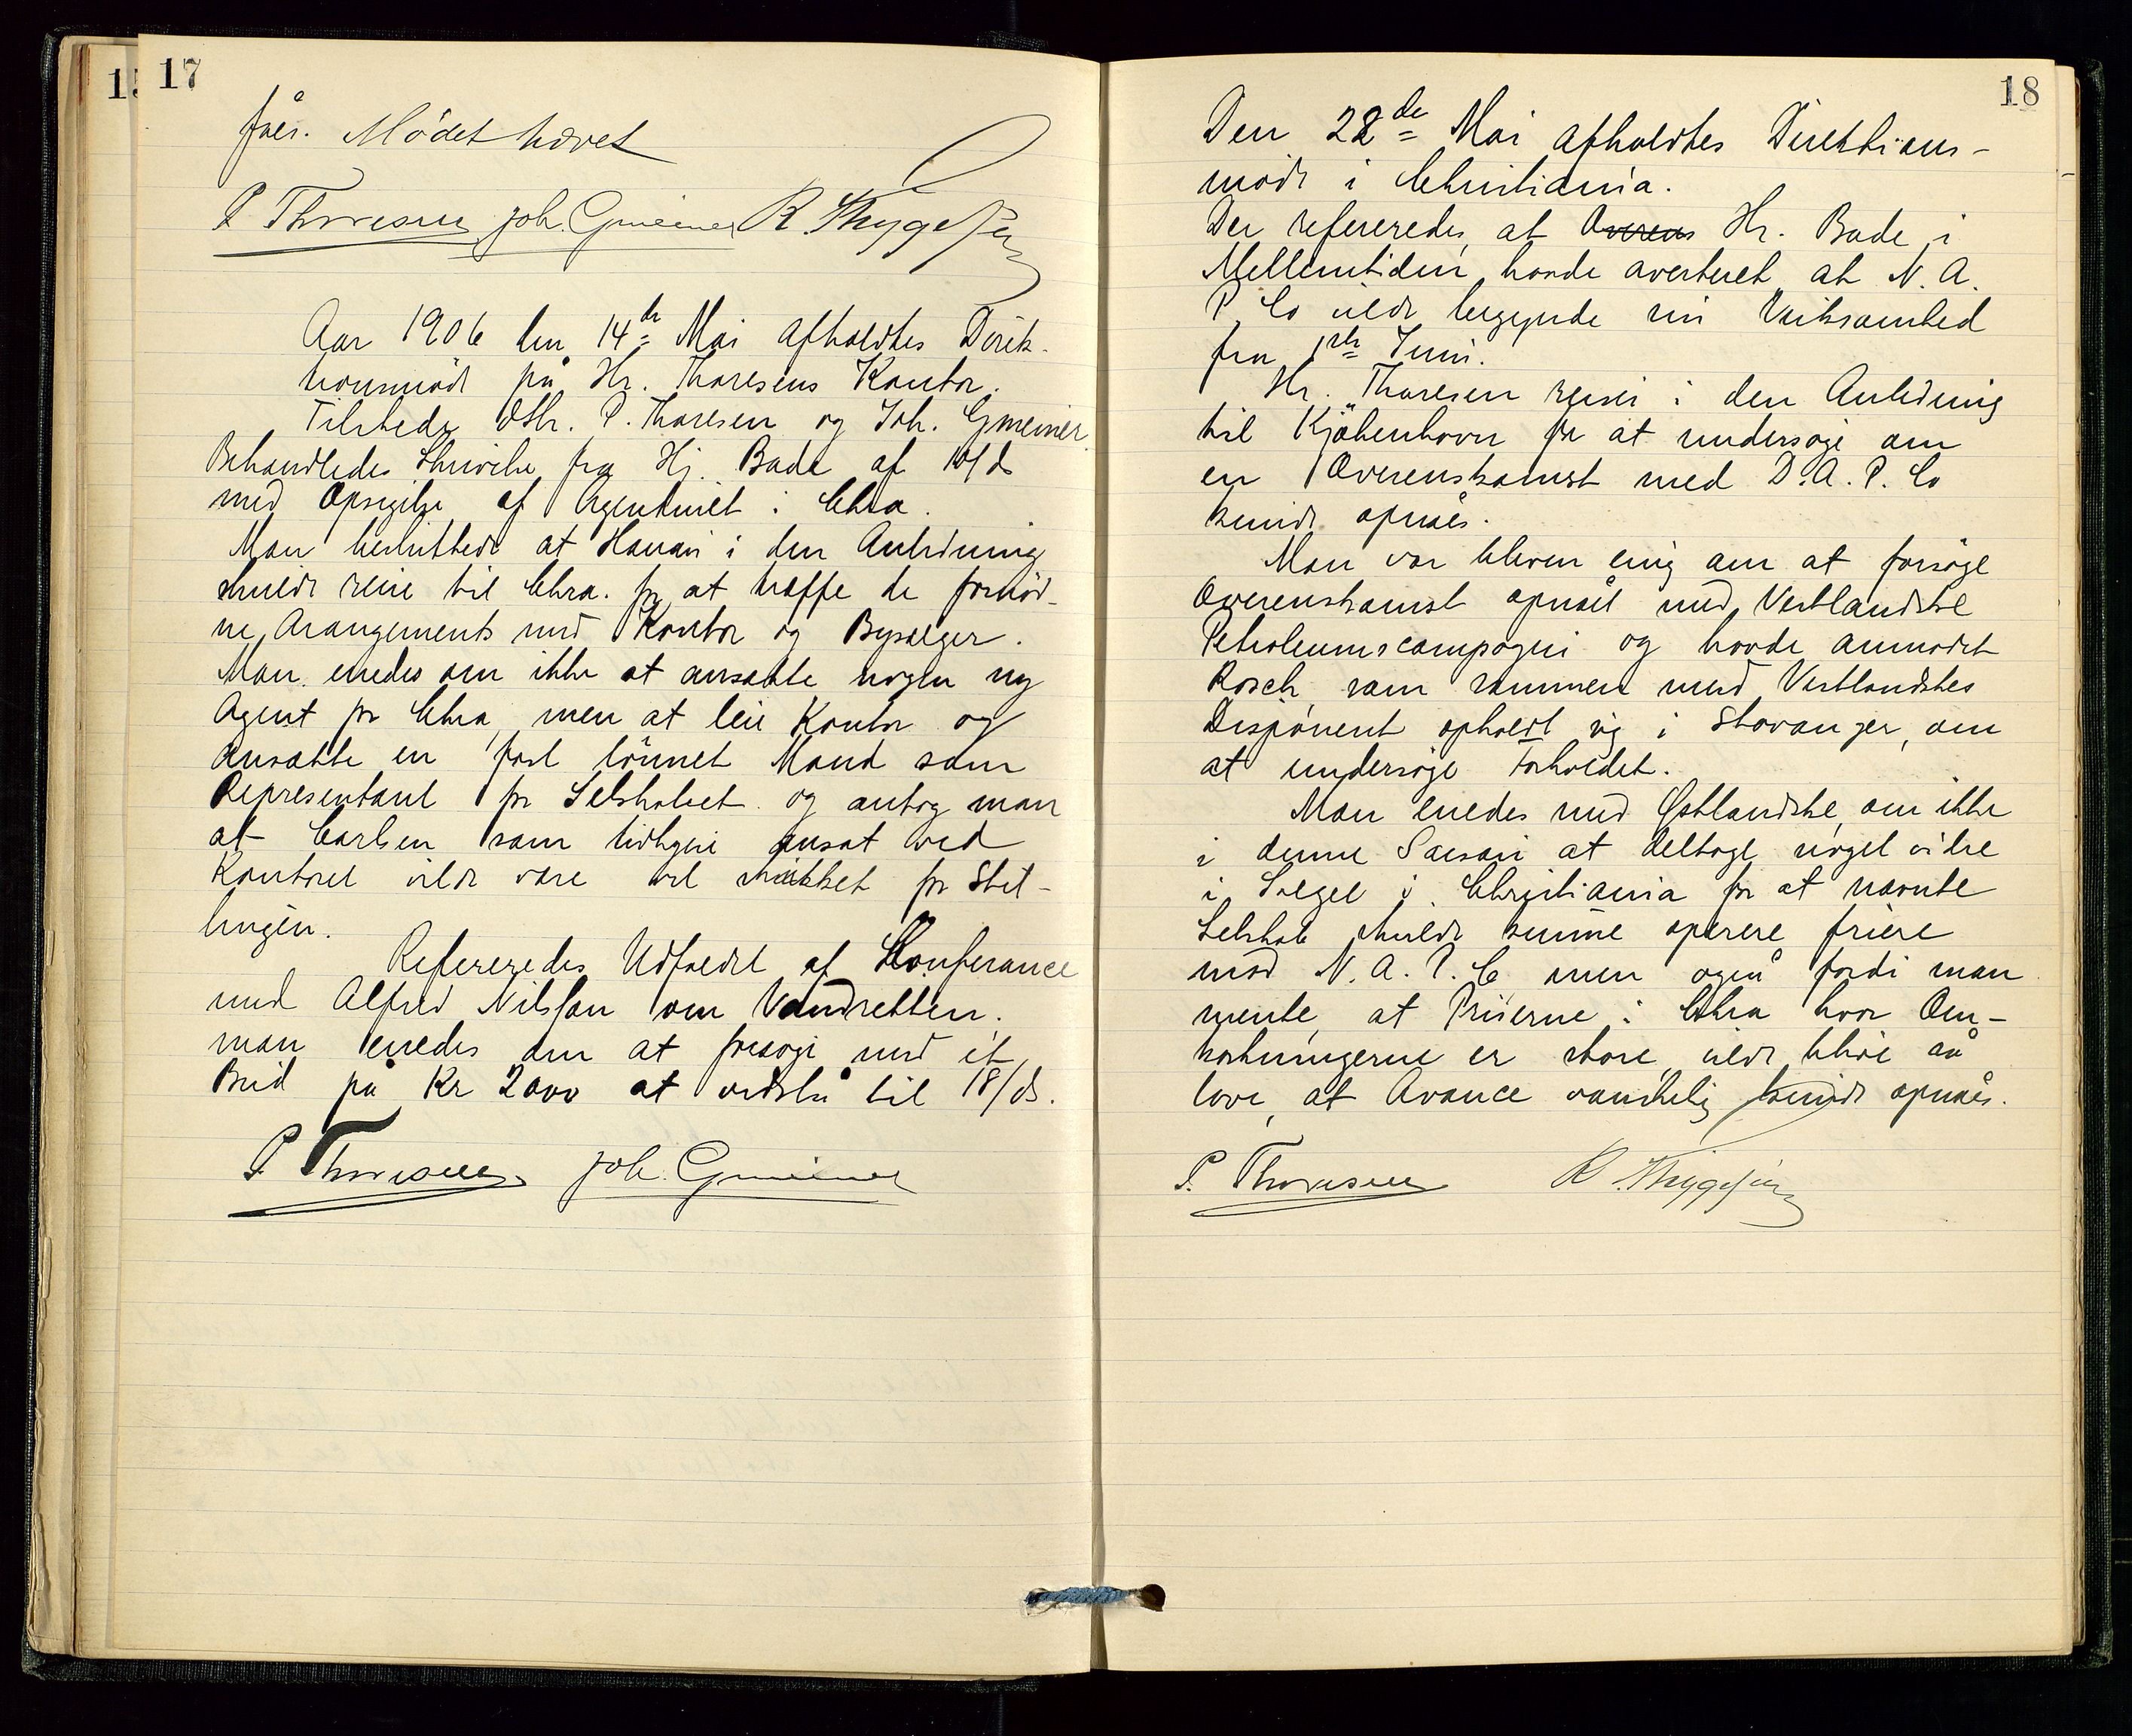 15
17
fåes. Mödet hævet
P Thoresen Joh. Gmeiner R. Thygesen
Aar 1906 den 14de Mai afholdtes Direk-
tionsmöde på Hr. Thoresens Kontor.
Tilstede dHr. P. Thoresen og Joh. Gmeiner
Behandledes Skrivelse fra Hj. Bade af 10/ds
med Opsigelse af Agenturet i Chra.
Man besluttede at Hansen i den Anledning
skulde reise til Chra. for at træffe de fornöd-
ne Arangements med Kontor og Bysælger.
Man enedes om ikke at ansætte nogen ny
Agent for Chra, men at leie Kontor og
ansætte en fast lönnet Mand som
Representant for Selskabet og antog man
at Carlsen som tidligere ansat ved
Kontoret vilde være vel skikket for Stil-
lingen.
Refereredes Udfaldet af Konferance
med Alfred Nilssen om Vandretten.
man enedes om at forsöge med et
Bud på Kr 2000 at vedstå til 18/ds.
P Thoresen Joh. Gmeiner
18
Den 22de Mai afholdtes Direktions-
möde i Christiania.
Der refereredes at Overens Hr. Bade i
Mellemtiden havde averteret at N. A.
P. Co vilde begynde sin Virksomhed
fra 1ste Juni.
Hr. Thoresen reiser i den Anledning
til Kjöbenhavn for at undersöge om
en Overenskomst med D. A. P. Co
kunde opnåes.
Man var bleven enig om at forsöge
Overenskomst opnået med Vestlandske
Petroleumscompagni og havde anmodet
Rosch, som sammen med Vestlandskes
Disponent opholdt sig i Stavanger, om
at undersöge Forholdet.
Man enedes med Østlandske om ikke
i denne Saeson at deltage noget videre
i Salget i Christiania for at nævnte
Selskab skulde kunne operere friere
mod N. A. P. C men også fordi man
mente, at Priserne i Chra hvor Om-
kostningerne er store vilde blive så
lave, at Avance vanskelig kunde opnåes.
P. Thoresen R. Thygesen